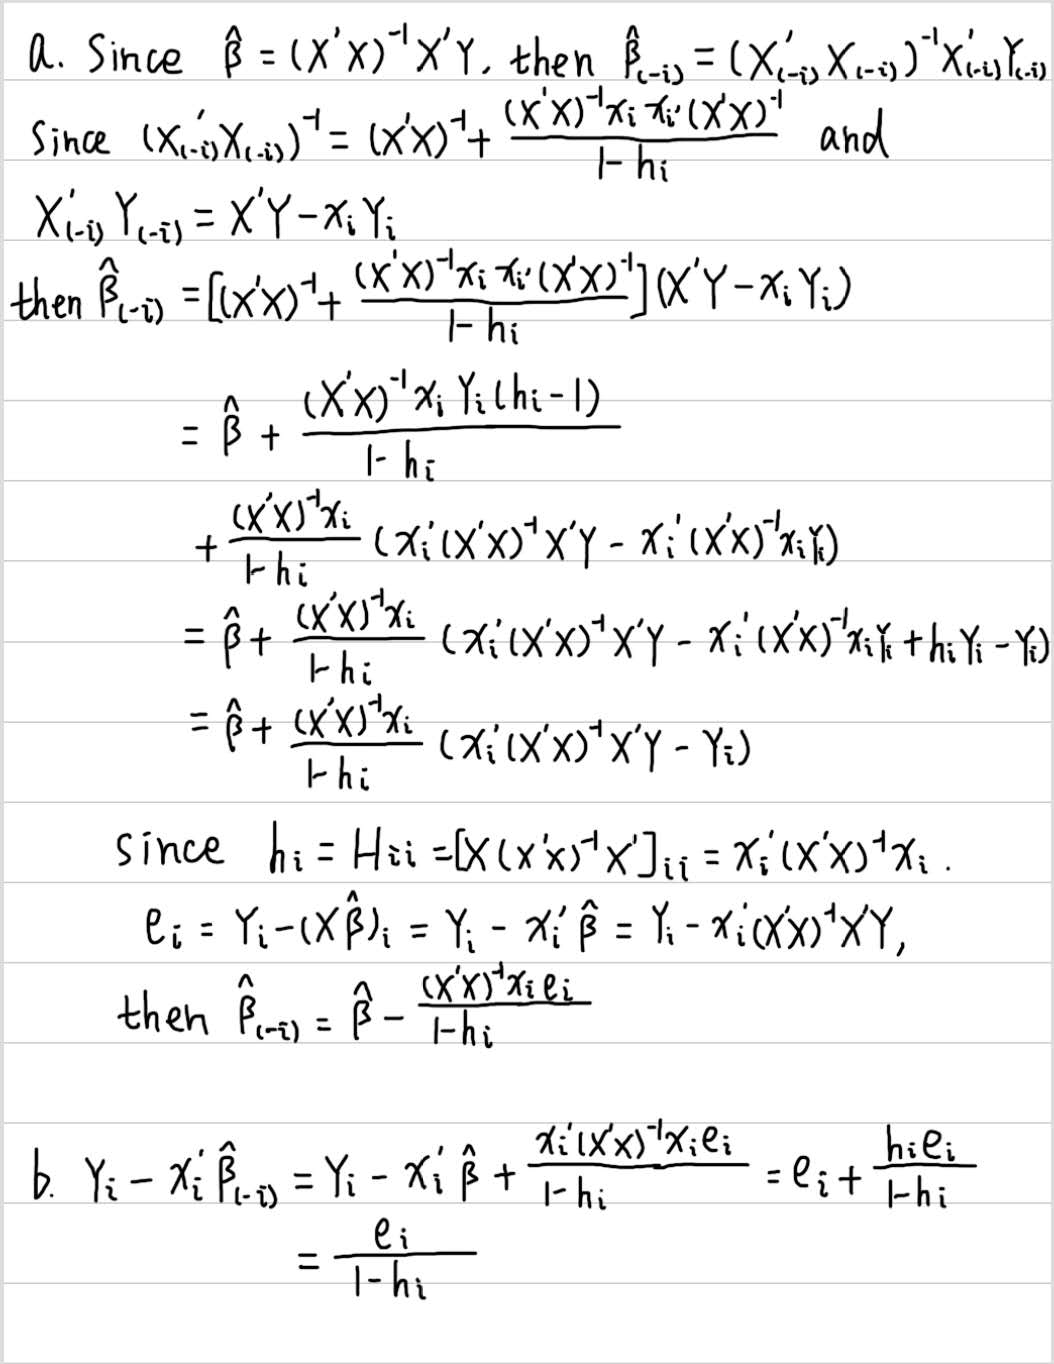 a. Since β̂ = (X'X)⁻¹X'Y, then β̂₍₋ᵢ₎ = (X'₍₋ᵢ₎X₍₋ᵢ₎)⁻¹X'₍₋ᵢ₎Y₍₋ᵢ₎
Since (X'₍₋ᵢ₎X₍₋ᵢ₎)⁻¹ = (X'X)⁻¹ + \frac{(X'X)⁻¹xᵢxᵢ'(X'X)⁻¹}{1-hᵢ} and
X'₍₋ᵢ₎Y₍₋ᵢ₎ = X'Y - xᵢYᵢ
then β̂₍₋ᵢ₎ = [(X'X)⁻¹ + \frac{(X'X)⁻¹xᵢxᵢ'(X'X)⁻¹}{1-hᵢ}](X'Y - xᵢYᵢ)
= β̂ + \frac{(X'X)⁻¹xᵢYᵢ(hᵢ-1)}{1-hᵢ}
+ \frac{(X'X)⁻¹xᵢ}{1-hᵢ} (xᵢ'(X'X)⁻¹X'Y - xᵢ'(X'X)⁻¹xᵢYᵢ)
= β̂ + \frac{(X'X)⁻¹xᵢ}{1-hᵢ} (xᵢ'(X'X)⁻¹X'Y - xᵢ'(X'X)⁻¹xᵢYᵢ + hᵢYᵢ - Yᵢ)
= β̂ + \frac{(X'X)⁻¹xᵢ}{1-hᵢ} (xᵢ'(X'X)⁻¹X'Y - Yᵢ)
since hᵢ = Hᵢᵢ = [X(X'X)⁻¹X']ᵢᵢ = xᵢ'(X'X)⁻¹xᵢ.
eᵢ = Yᵢ - (Xβ̂)ᵢ = Yᵢ - xᵢ'β̂ = Yᵢ - xᵢ'(X'X)⁻¹X'Y,
then β̂₍₋ᵢ₎ = β̂ - \frac{(X'X)⁻¹xᵢeᵢ}{1-hᵢ}
b. Yᵢ - xᵢ'β̂₍₋ᵢ₎ = Yᵢ - xᵢ'β̂ + \frac{xᵢ'(X'X)⁻¹xᵢeᵢ}{1-hᵢ} = eᵢ + \frac{hᵢeᵢ}{1-hᵢ}
= \frac{eᵢ}{1-hᵢ}